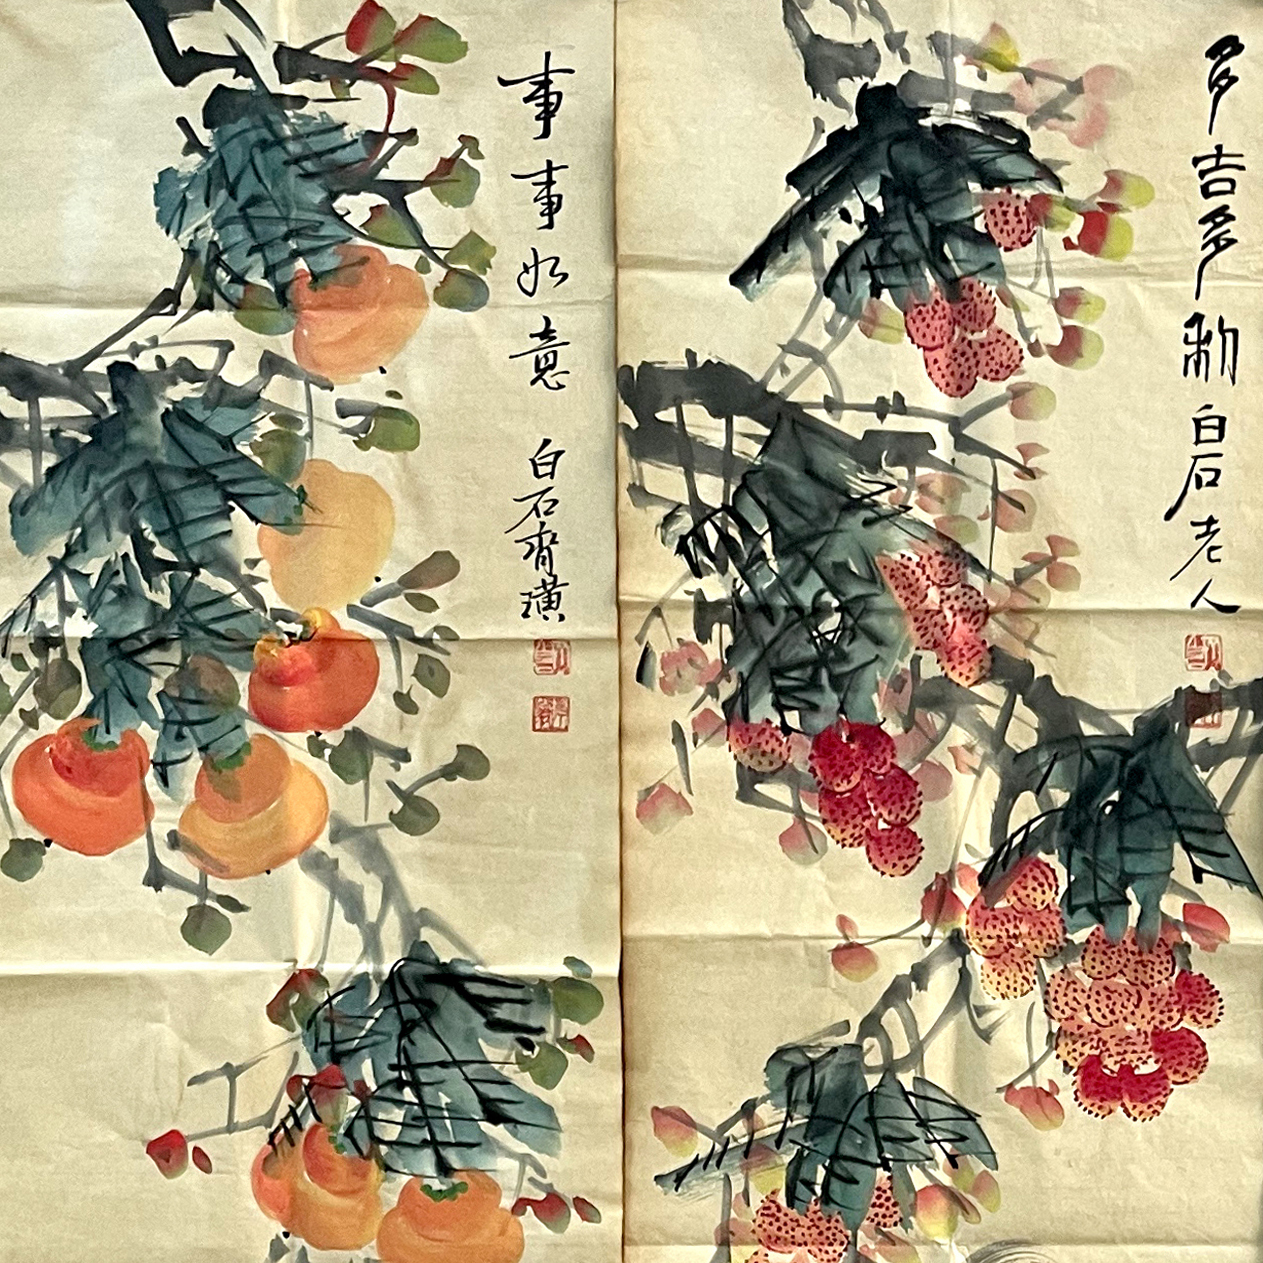 多吉多利 白石老人
事事如意 白石齊璜